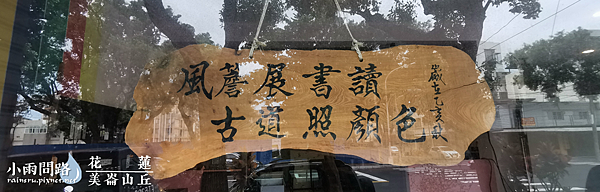 風簷展書讀
古道照顏色
歲在乙亥秋
小雨問路
raineru.pixnet.net
花蓮
美崙山丘